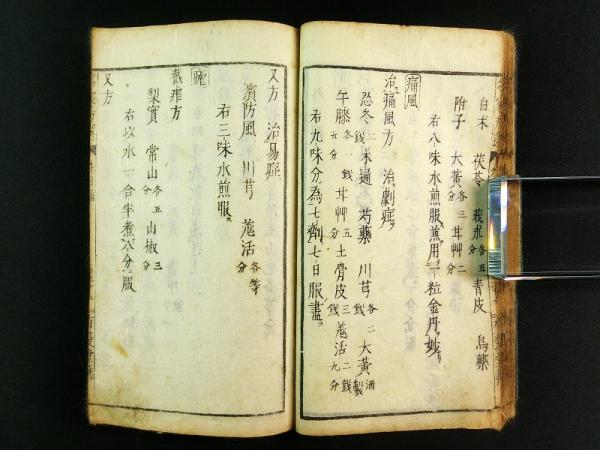 白朮 茯苓 莪朮各五分 青皮 烏藥
附子 大黄各三分 甘艸二分
右八味水煎服兼用一粒金丹妙
痛風
治痛風方 治劇症
忍冬二錢 木通 芍藥 川芎各二錢 大黄酒製
午膝各一錢五分 甘艸五分 土骨皮三錢 羗活二錢九分
右九味分為七劑七日服盡
又方 治易症
濱防風 川芎 羗活各等分
右三味水煎服
瘧
截瘧方
梨實 常山各五分 山椒三分
右以水一合半煮八分服
又方